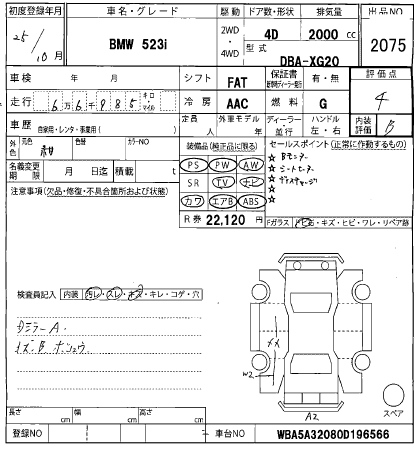 初度登録年月 車名・グレード 駆動 ドア数・形状 排気量 出品NO
25/10月 BMW 523i 2WD・4WD 4D 2000 cc 2075
型式 DBA-XG20
車検 年 月 シフト FAT 保証書 有・無 評価点
走行 6万6千985 キロ・マイル 冷房 AAC 燃料 G 4
車歴 自家用・レンタ・事業用( ) 定員 人 外車モデル 年 ディーラー・並行 ハンドル 左・右 内装評価 B
外色 元色 紺 色替 カラーNO 装備品(純正品に限る) セールスポイント(正常に動作するもの)
名義変更期限 月 日迄 積載 t PS PW AW ☆ Bモニター
注意事項(欠品・修復・不具合箇所および状態) SR TV ナビ ☆ シートヒーター
カワ エアB ABS ☆
☆
☆
R券 22,120 円 Fガラス トビ石・キズ・ヒビ・ワレ・リペア跡
検査員記入 内装 汚レ・スレ・キズ・キレ・コゲ・穴
ダミラーA
イス.B ホシュウ
W2
A2
スペア
長さ cm 幅 cm 高さ cm
登録NO 車台NO WBA5A32080D196566